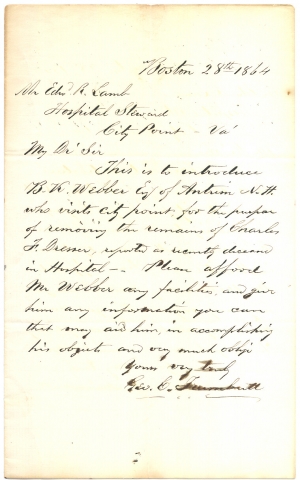 Boston 28th 1864
Mr Edwd R. Lamb
Hospital Steward
City Point - Va
My Dr Sir
This is to introduce
B. K. Webber Esq of Antrim N.H.
who visits City point for the purpose
of removing the remains of Charles
F. Dresser, reported as recently deceased
in Hospital -- Please afford
Mr Webber any facilities, and give
him any information you can
that may aid him, in accomplishing
his objects and very much oblige
Yours very truly
Geo. C. Trumbull